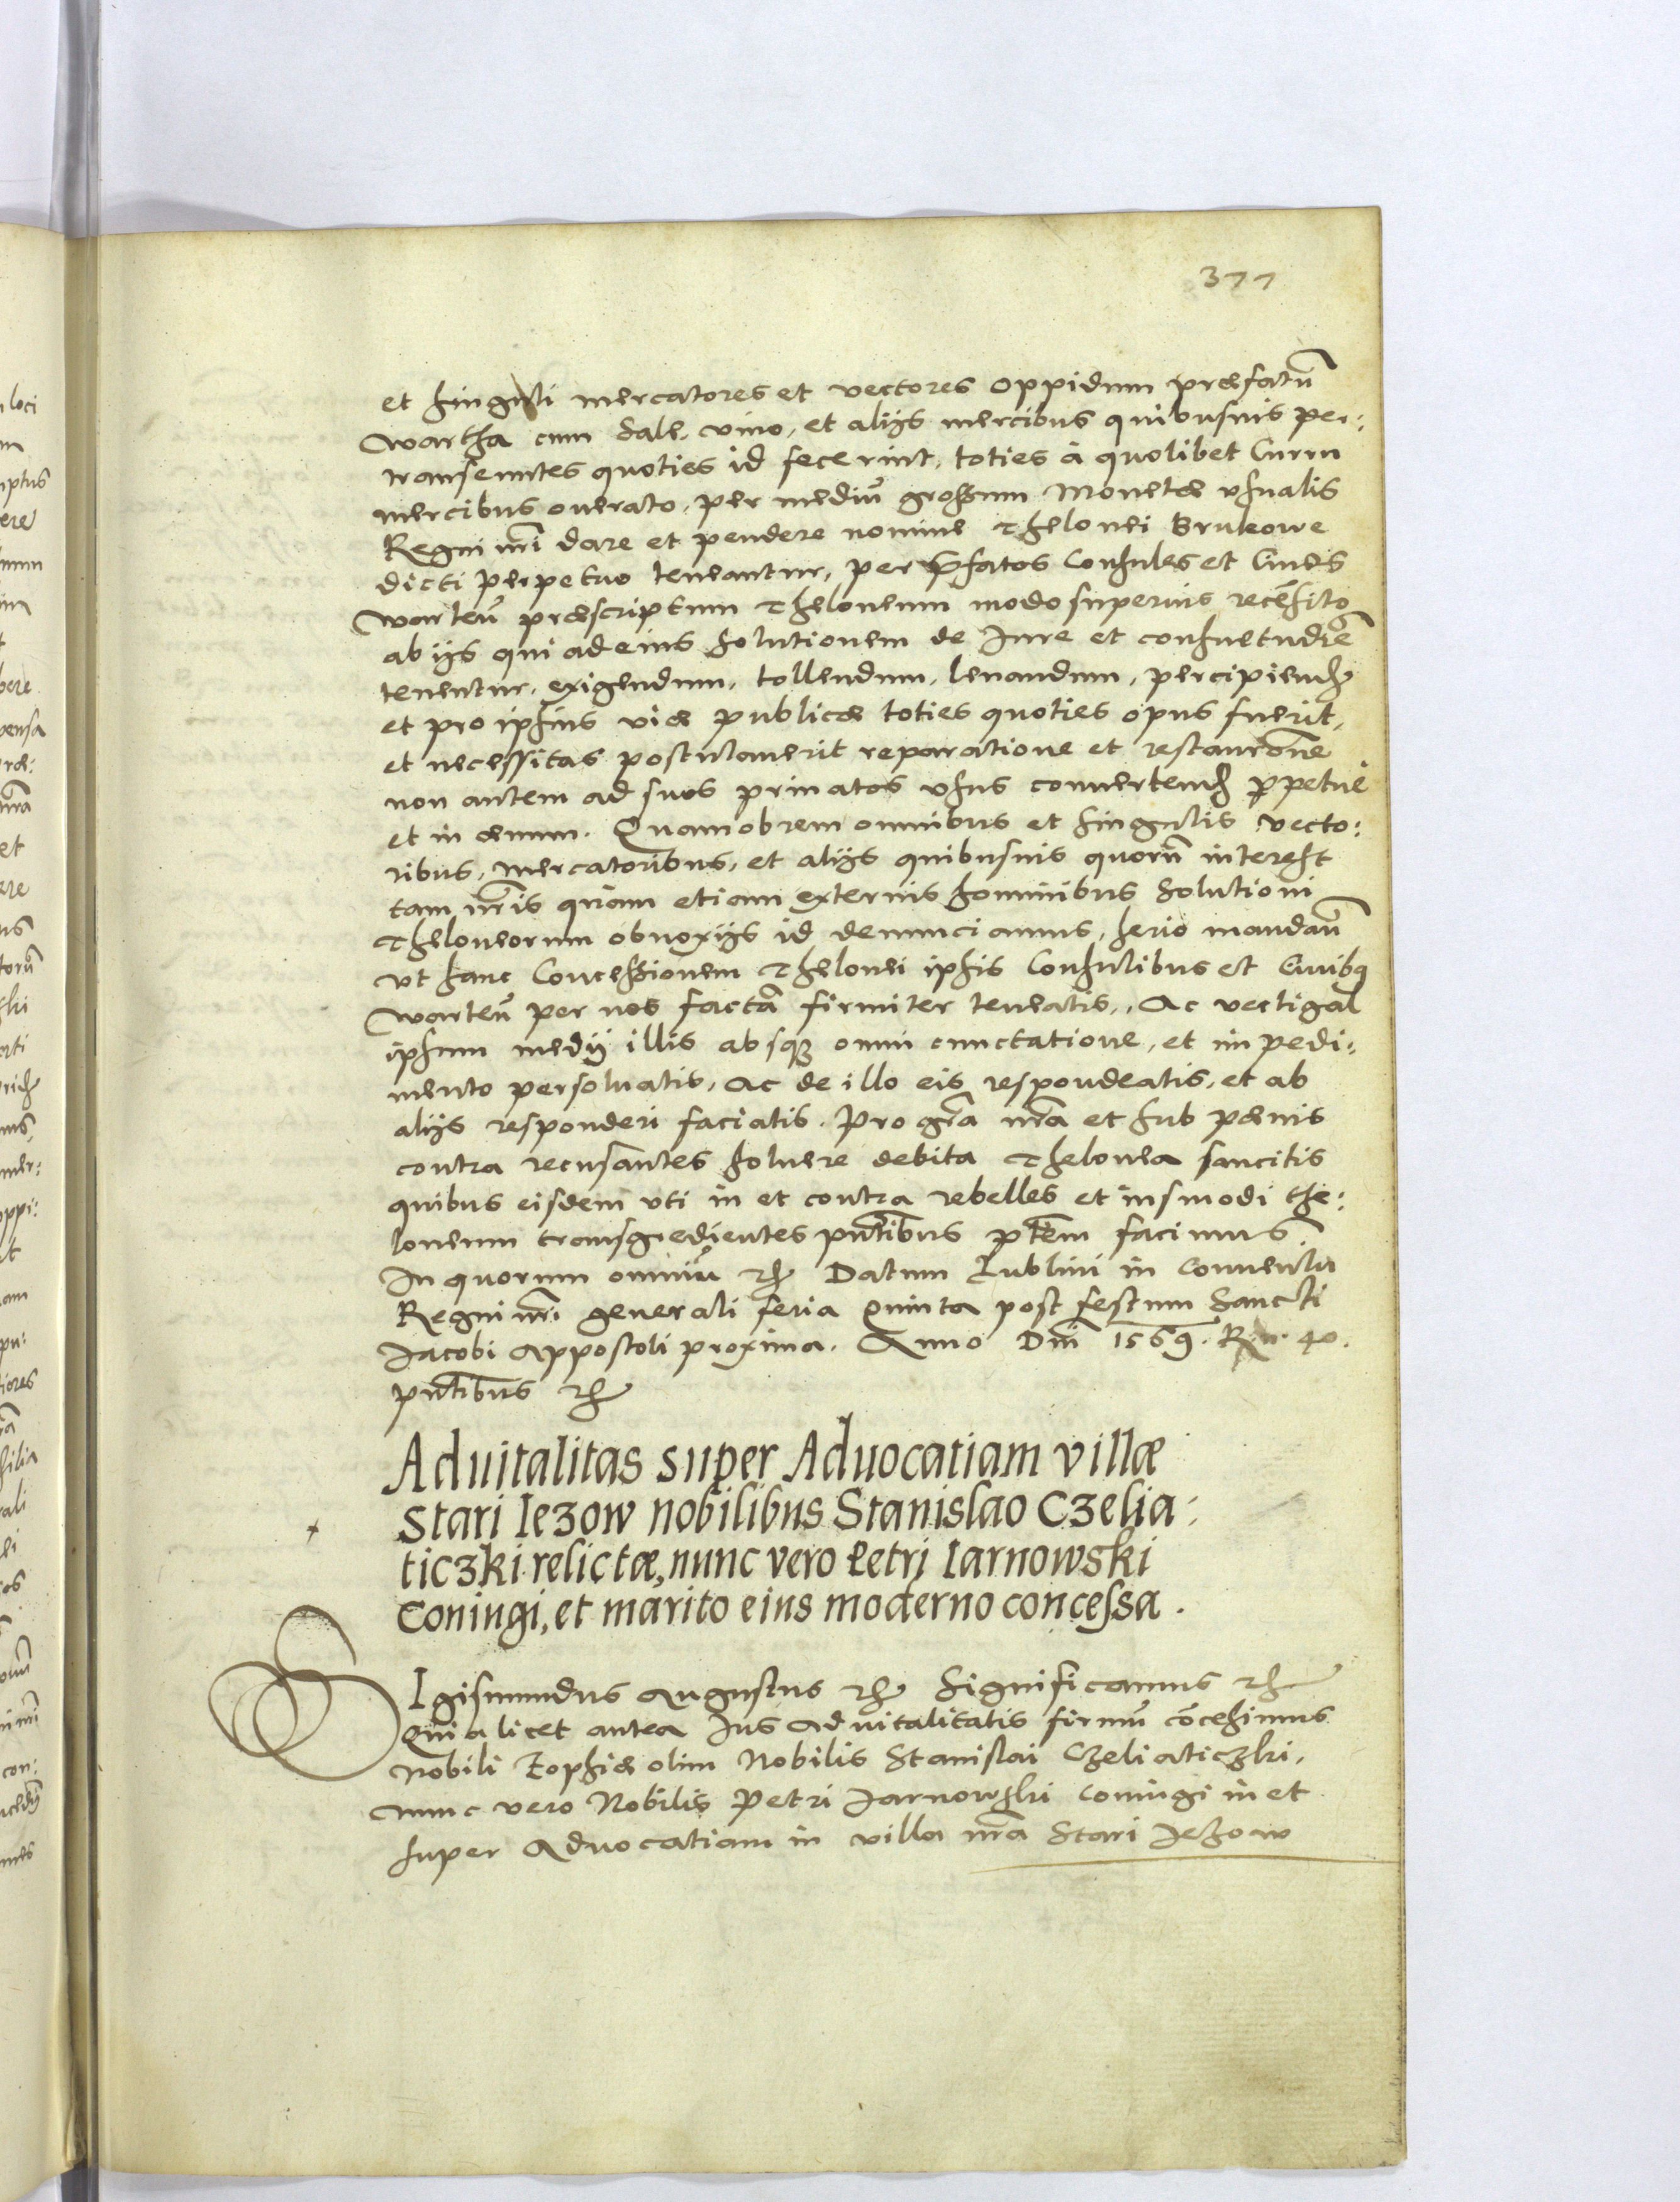 377
et singuli mercatores et vectores oppidum præfatū
Wartha cum Sale, vino, et alijs mercibus quibusuis per:
transeuntes quoties id fecerint, toties à quolibet Curru
mercibus onerato, per mediū grossum Monetæ vsualis
Regni nr̄i dare et pendere nomine Thelonei Brukowe
dicti perpetuo teneantur, per p̄fatos Consules et Ciues
Warteñ præscriptum Theloneum modo superius recēsito
ab ijs qui ad eius solutionem de Iure et consuetudīe
tenentur, exigendum, tollendum, leuandum, percipiend
et pro ipsius viæ publicæ toties quoties opus fuerit,
et necessitas postulauerit reparatione et restaurōne
non autem ad suos priuatos vsus conuertend p̱petue
et in æuum. Quamobrem omnibus et singulis vecto:
ribus, mercatoribus, et alijs quibusuis quorū interest
tam nr̄is quàm etiam externis hominibus solutioni
Theloneorum obnoxijs id denunciamus, serio mandam̄
vt hanc Concessionem Thelonei ipsis Consulibus et Ciuibq
Warteñ per nos factā firmiter teneatis, Ac vectigal
ipsum medij illis absqꝫ omni cunctatione, et impedi:
mento persoluatis, Ac de illo eis respondeatis, et ab
alijs responderi faciatis. Pro gr̄a nr̄a et sub pænis
contra recusantes soluere debita Thelonea sancitis
quibus eisdem vti in et contra rebelles et insmodi the:
loneum transgredientes pn̄tibus ptēm facimus.
In quorum omniū rꝫ Datum Lublini in Conuentu
Regni nr̄i generali feria Quinta post festum Sancti
Iacobi Appostoli proxima. Anno Dn̄i 1569. R. n. 40.
pn̄tibus rꝫ
Aduitalitas super Aduocatiam villæ
Stari Iezow nobilibus Stanislao Czelia:
ticzki relictæ, nunc vero Petri Iarnowski
Coniugi, et marito eius moderno concessa.
SIgismundus Augustus rꝫ Significamus rꝫ
Quia licet antea Ius aduitalitatis firmū cōcesimus
Nobili Zophiæ olim Nobilis Stanislai Czeliaticzki,
nunc vero Nobilis Petri Iarnowski coniugi in et
super Aduocatiam in villa nr̄a Stari Iezow